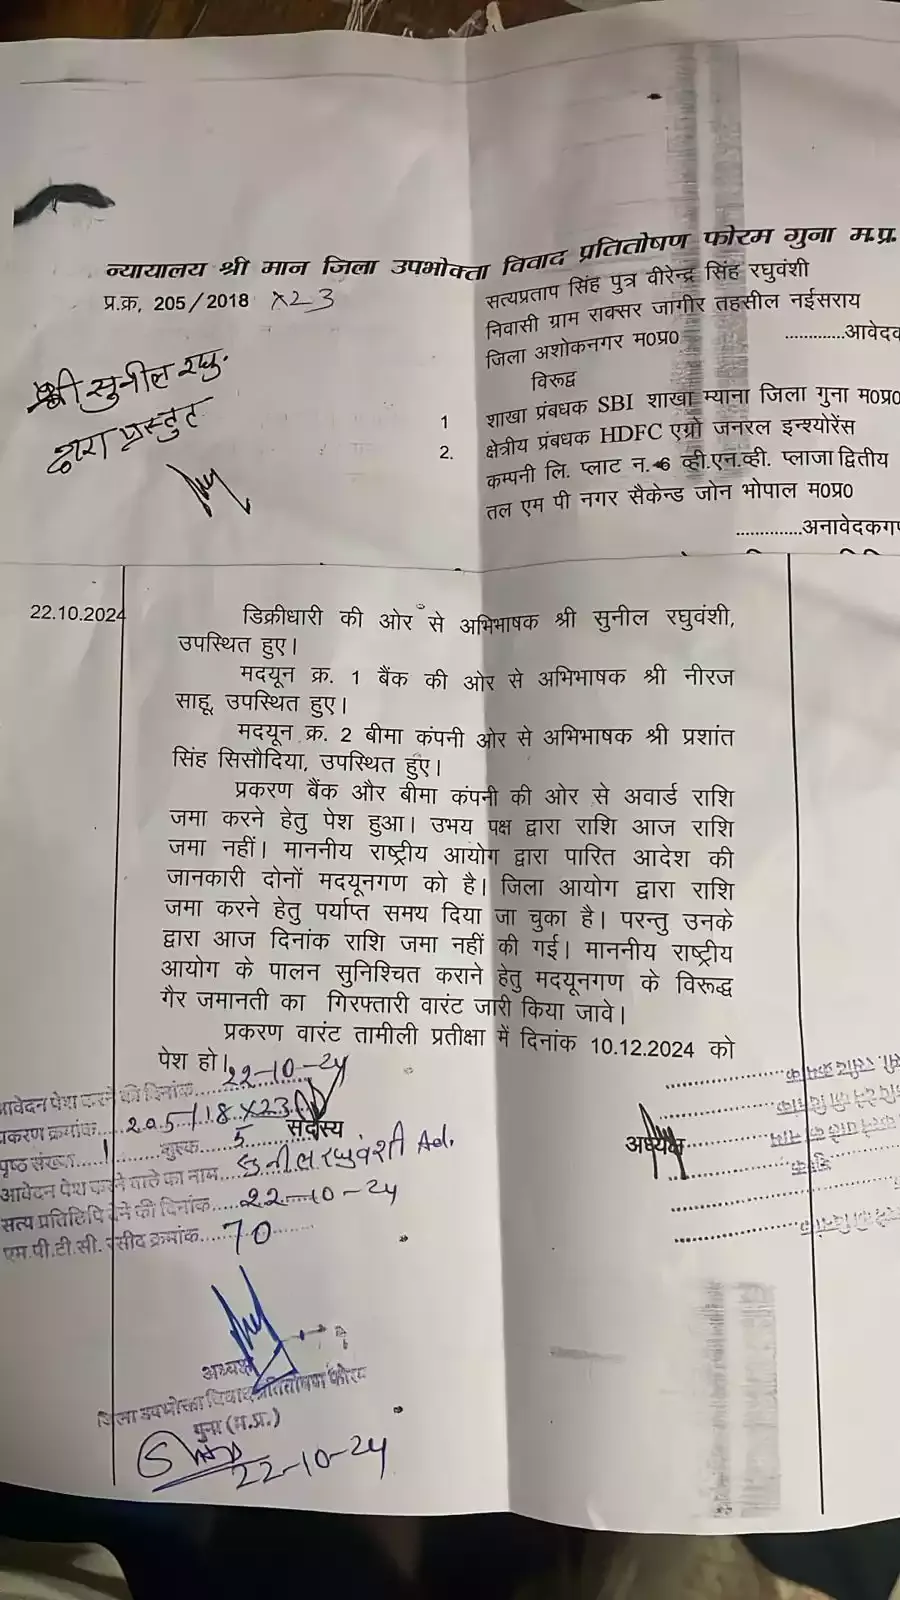 न्यायालय श्री मान जिला उपभोक्ता विवाद प्रतितोषण फोरम गुना म.प्र.
प्र.क्र, 205/2018 X23
सत्यप्रताप सिंह पुत्र वीरेन्द्र सिंह रघुवंशी
निवासी ग्राम राक्सर जागीर तहसील नईसराय
जिला अशोकनगर म0प्र0 ............आवेदक
विरूद्व
श्री सुनील रघु.
द्वारा प्रस्तुत
1 शाखा प्रंबधक SBI शाखा म्याना जिला गुना म0प्र0
2. क्षेत्रीय प्रंबधक HDFC एग्रो जनरल इन्श्योरेंस
कम्पनी लि. प्लाट न.-6 व्ही.एन.व्ही. प्लाजा द्वितीय
तल एम पी नगर सैकेन्ड जोन भोपाल म0प्र0
..............अनावेदकगण
22.10.2024 डिक्रीधारी की ओर से अभिभाषक श्री सुनील रघुवंशी,
उपस्थित हुए।
मदयून क्र. 1 बैंक की ओर से अभिभाषक श्री नीरज
साहू, उपस्थित हुए।
मदयून क्र. 2 बीमा कंपनी ओर से अभिभाषक श्री प्रशांत
सिंह सिसौदिया, उपस्थित हुंए।
प्रकरण बैंक और बीमा कंपनी की ओर से अवार्ड राशि
जमा करने हेतु पेश हुआ। उभय पक्ष द्वारा राशि आज राशि
जमा नहीं। माननीय राष्ट्रीय आयोग द्वारा पारित आदेश की
जानकारी दोनों मदयूनगण को है। जिला आयोग द्वारा राशि
जमा करने हेतु पर्याप्त समय दिया जा चुका है। परन्तु उनके
द्वारा आज दिनांक राशि जमा नहीं की गई। माननीय राष्ट्रीय
आयोग के पालन सुनिश्चित कराने हेतु मदयूनगण के विरूद्ध
गैर जमानती का गिरफ्तारी वारंट जारी किया जावे।
प्रकरण वारंट तामीली प्रतीक्षा में दिनांक 10.12.2024 को
पेश हो।
आवेदन पेश करने की दिनांक...22-10-24
प्रकरण क्रमांक...205/18X23
सदस्य
अध्यक्ष
पृष्ठ संख्या...1...शुल्क...5
आवेदन पेश करने वाले का नाम...सुनील रघुवंशी Ad.
सत्य प्रतिलिपि देने की दिनांक...22-10-24
एम.पी.टी.सी. रसीद क्रमांक...70
अध्यक्ष
जिला उपभोक्ता विवाद प्रतितोषण फोरम
गुना (म.प्र.)
22-10-24